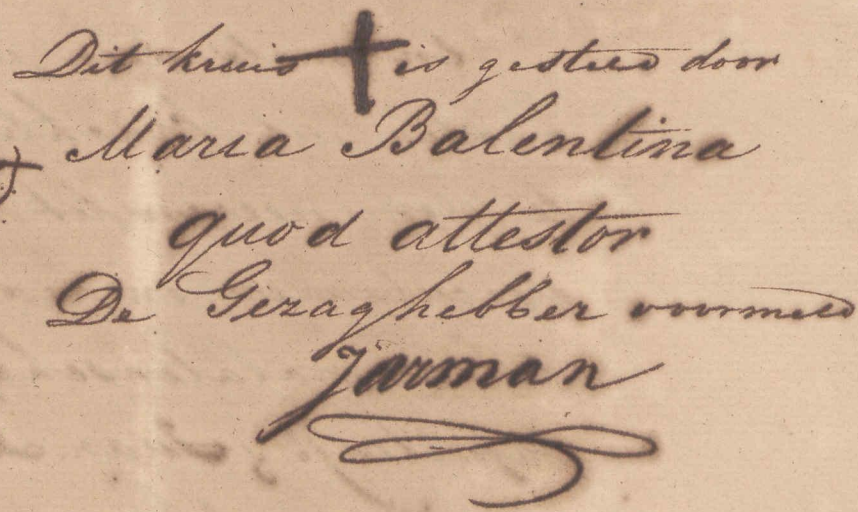 Dit kruis + is gesteld door
Maria Balentina
quod attestor
De Gezaghebber voormeld
Jarman